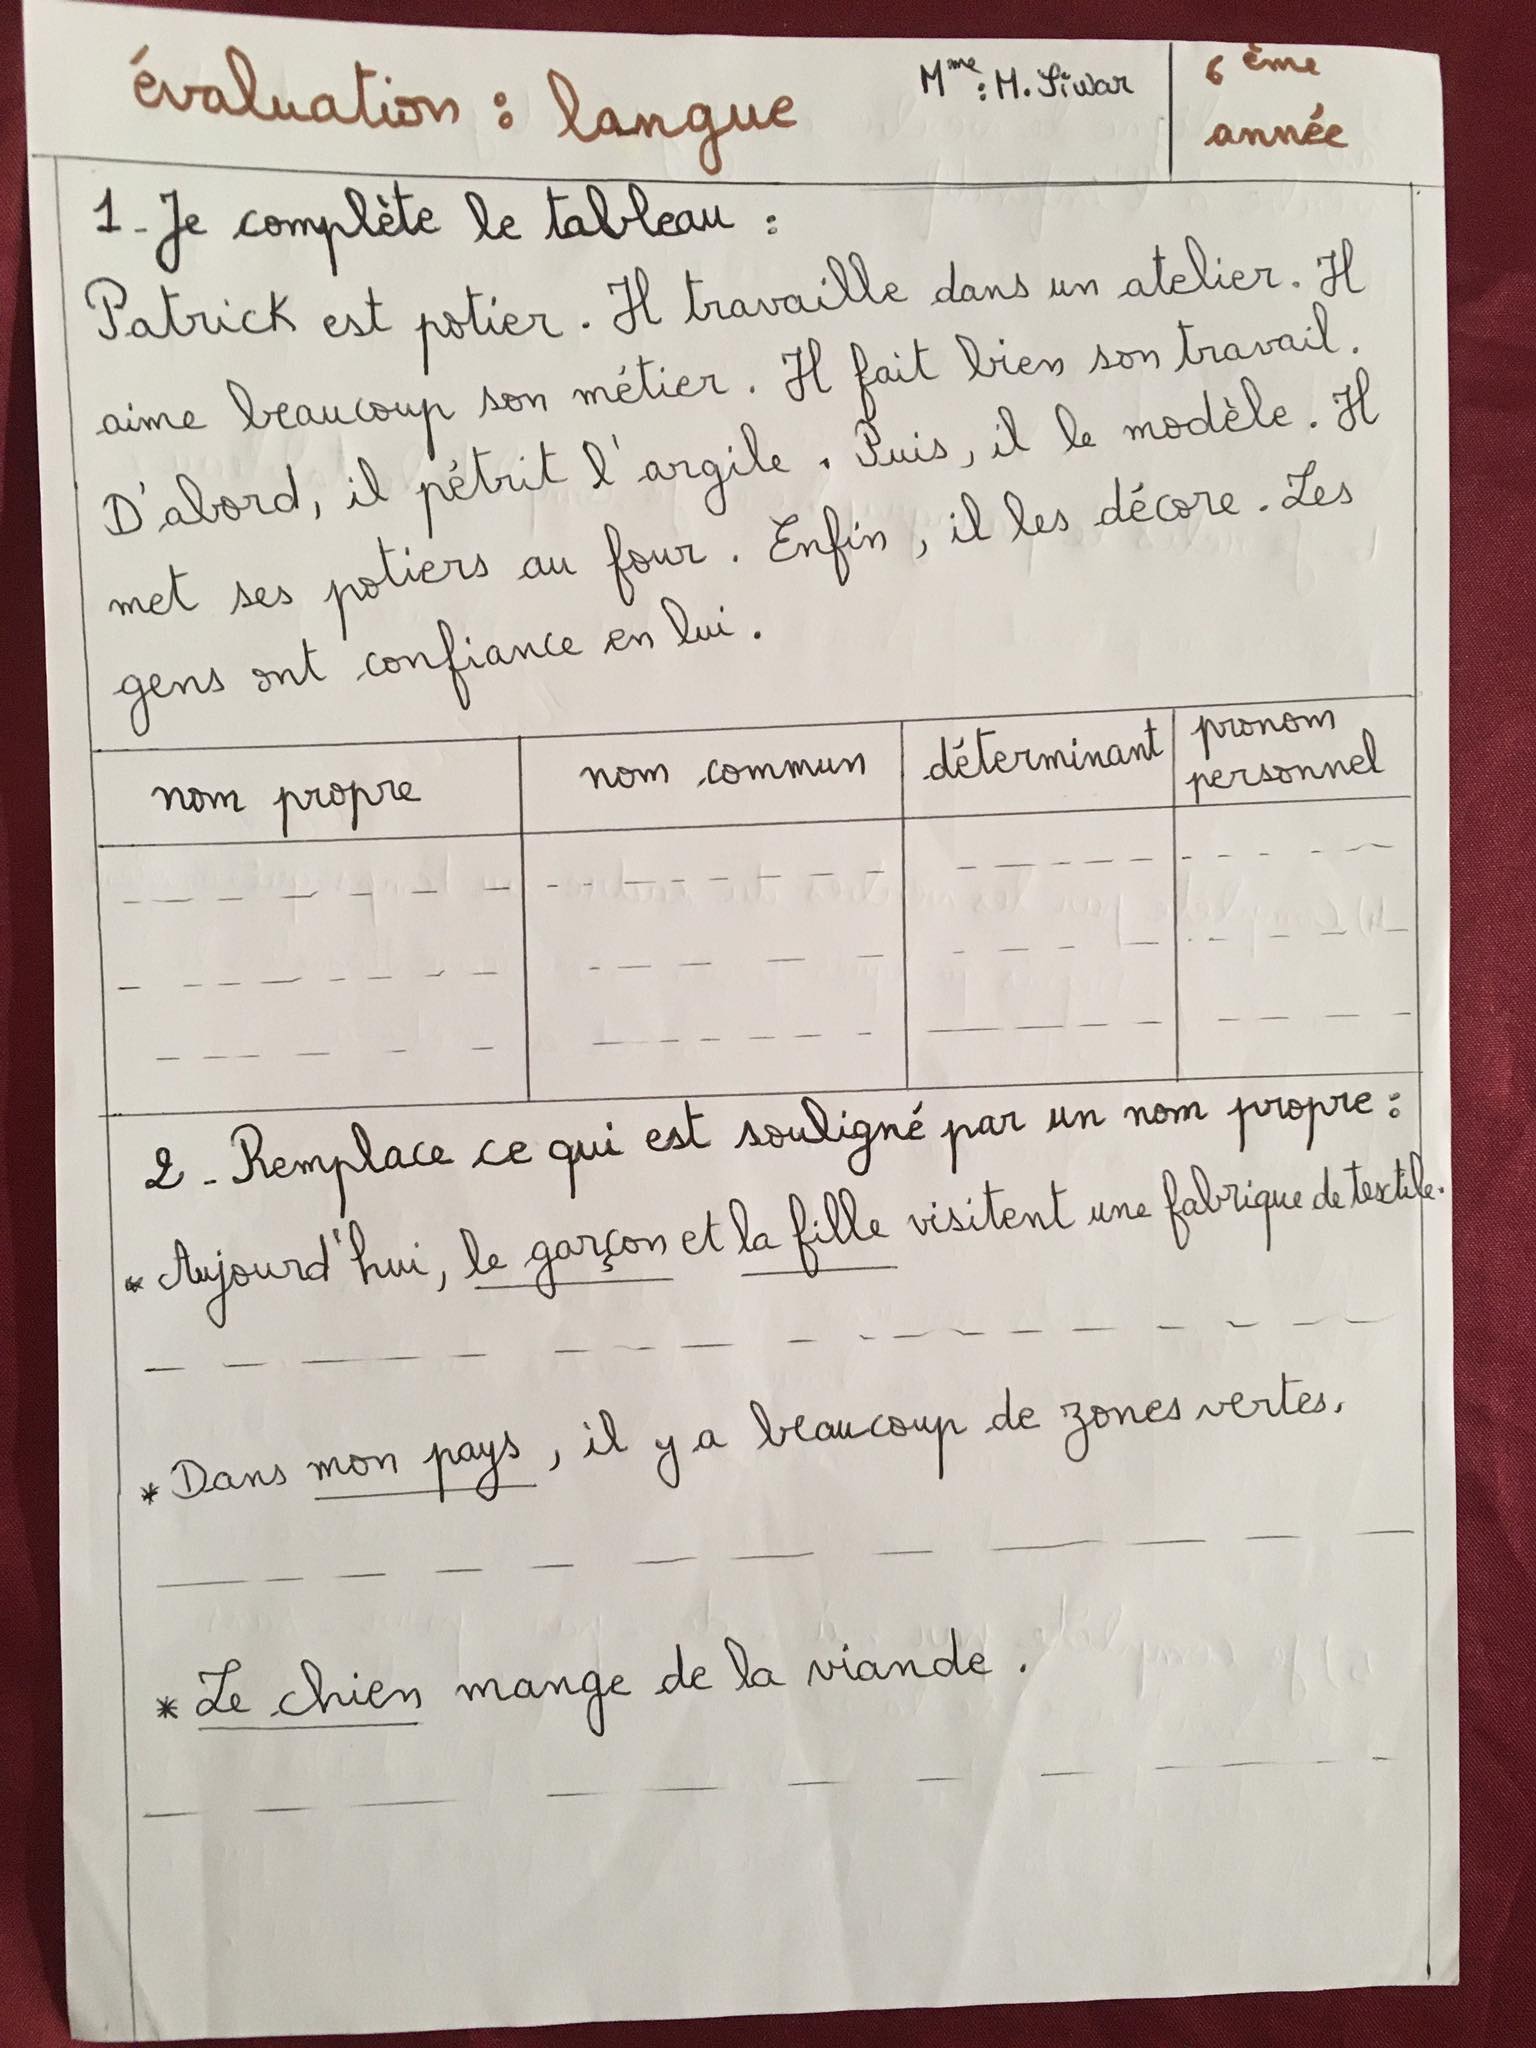 évaluation : langue
Mme : M. Siwar
6ème
année
1 - Je complète le tableau :
Patrick est potier. Il travaille dans un atelier. Il
aime beaucoup son métier. Il fait bien son travail.
D'abord, il pétrit l'argile. Puis, il le modèle. Il
met ses potiers au four. Enfin, il les décore. Les
gens ont confiance en lui.
nom propre
nom commun
déterminant
pronom
personnel
2 - Remplace ce qui est souligné par un nom propre :
* Aujourd'hui, le garçon et la fille visitent une fabrique de textile.
* Dans mon pays, il y a beaucoup de zones vertes.
* Le chien mange de la viande.